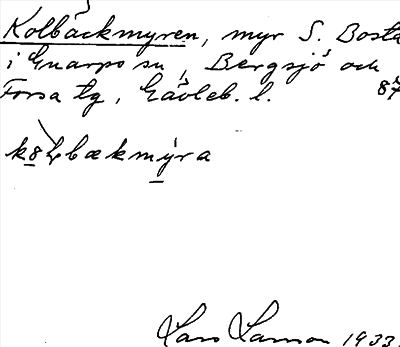 Kolbäckmyren, myr S. Bosta
i Gnarps sn, Bergsjö och
Forsa tg, Gävleb. l. 87
Lars Larsson 1933.